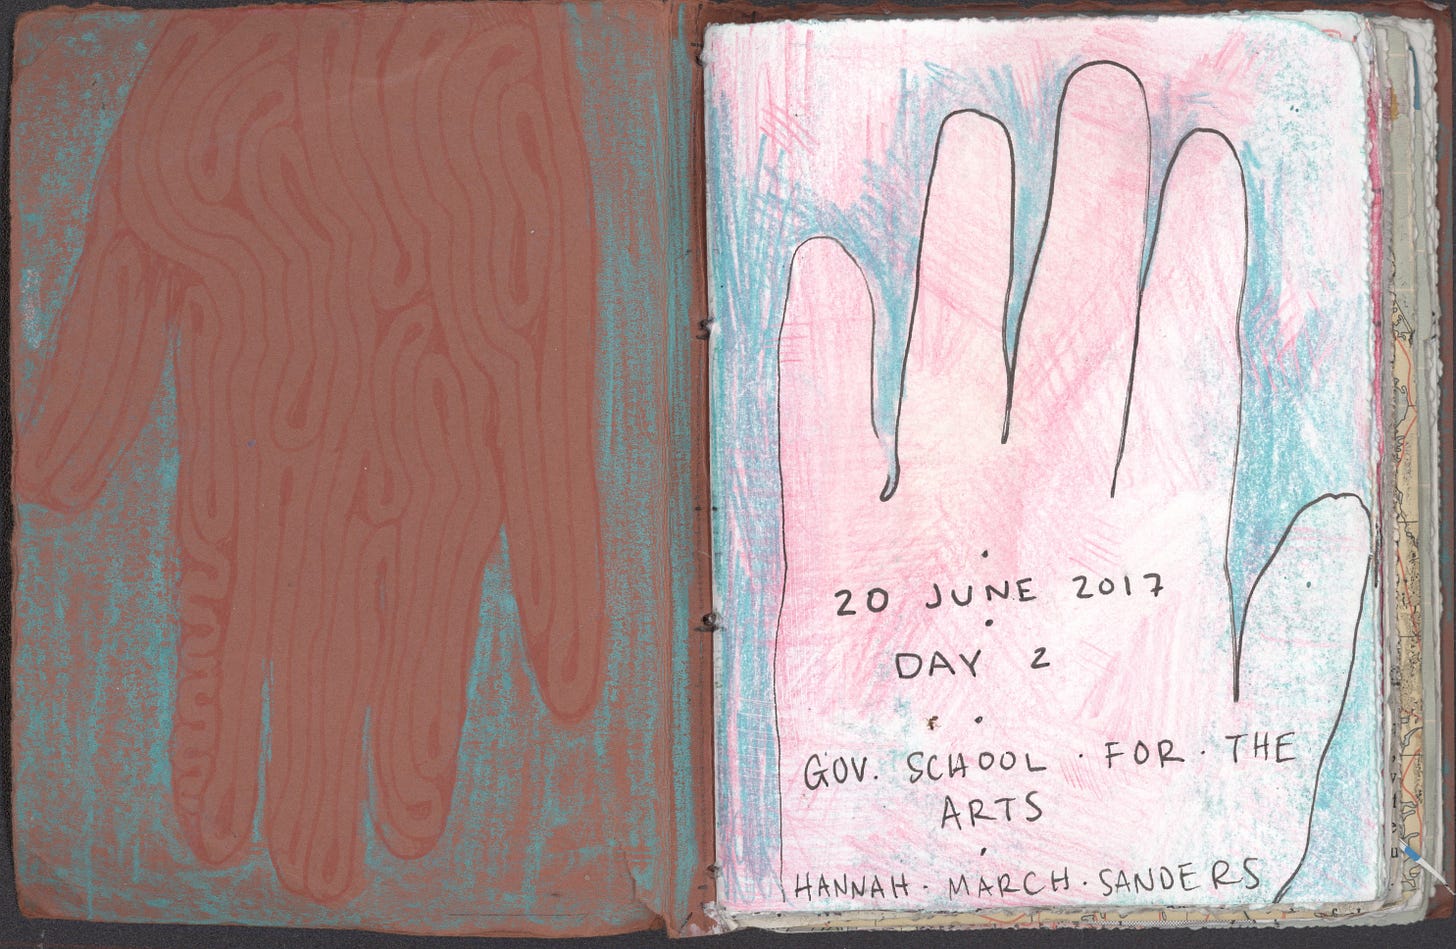 20 JUNE 2017
DAY 2
GOV. SCHOOL · FOR · THE
ARTS
HANNAH · MARCH · SANDERS